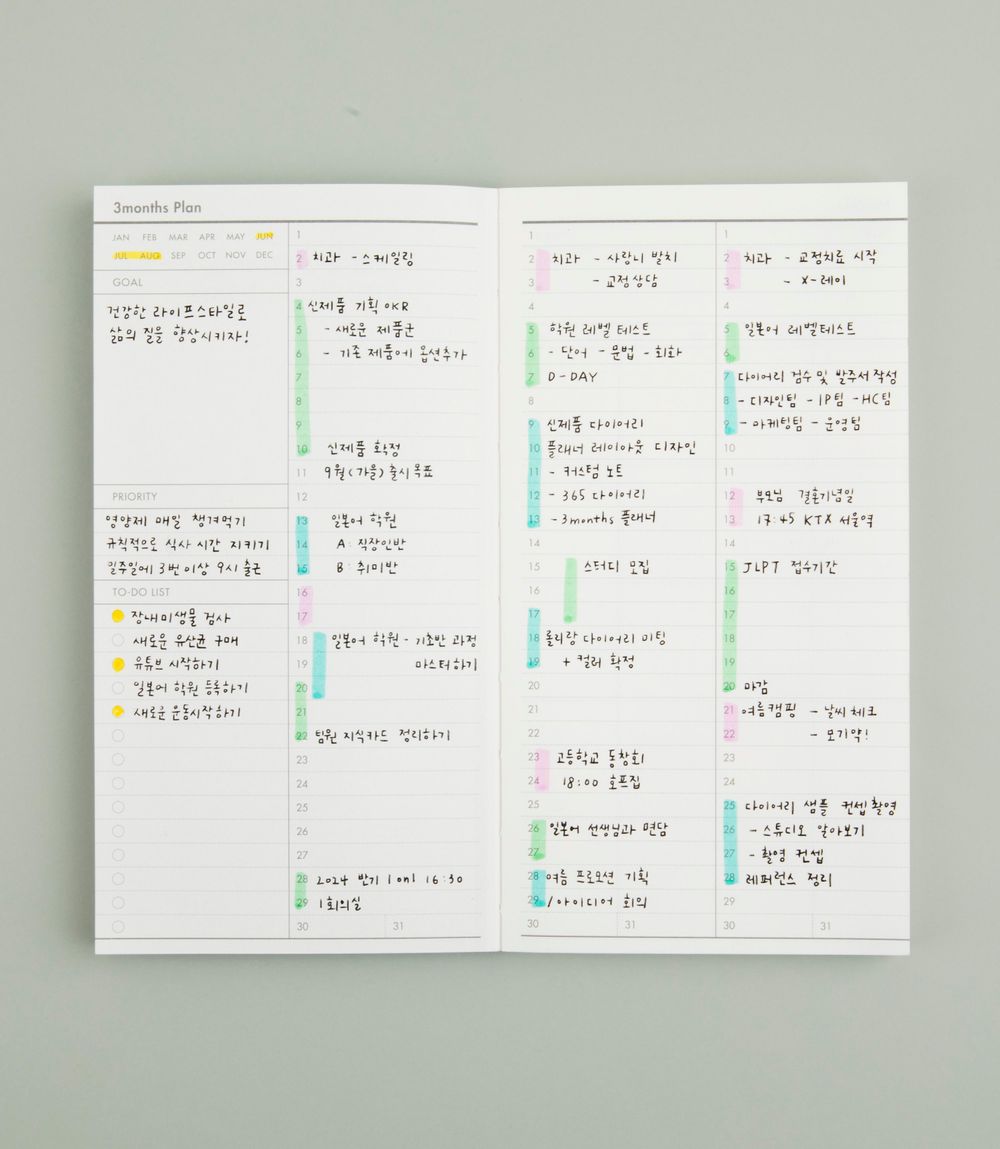 3months Plan
JAN FEB MAR APR MAY JUN
JUL AUG SEP OCT NOV DEC
GOAL
건강한 라이프스타일로
삶의 질을 향상시키자!
PRIORITY
영양제 매일 챙겨먹기
규칙적으로 식사 시간 지키기
일주일에 3번 이상 9시 출근
TO-DO LIST
장내미생물 검사
새로운 유산균 구매
유튜브 시작하기
일본어 학원 등록하기
새로운 운동시작하기
1
2 치과 - 스케일링
3
4 신제품 기획 OKR
5 - 새로운 제품군
6 - 기존 제품에 옵션추가
7
8
9
10 신제품 확정
11 9월(가을) 출시 목표
12
13 일본어 학원
14 A: 직장인반
15 B: 취미반
16
17
18 일본어 학원 - 기초반 과정
19 마스터하기
20
21
22 팀원 지식카드 정리하기
23
24
25
26
27
28 2024 반기 1on1 16:30
29 1회의실
30 31
1
2 치과 - 사랑니 발치
3 - 교정상담
4
5 학원 레벨 테스트
6 - 단어 - 문법 - 회화
7 D-DAY
8
9 신제품 다이어리
10 플래너 레이아웃 디자인
11 - 커스텀 노트
12 - 365 다이어리
13 - 3months 플래너
14
15 스터디 모집
16
17
18 롤리랑 다이어리 미팅
19 + 컬러 확정
20
21
22
23 고등학교 동창회
24 18:00 호프집
25
26 일본어 선생님과 면담
27
28 여름 프로모션 기획
29 / 아이디어 회의
30 31
1
2 치과 - 교정치료 시작
3 - X-레이
4
5 일본어 레벨테스트
6
7 다이어리 검수 및 발주서 작성
8 - 디자인팀 - IP팀 - HC팀
9 - 마케팅팀 - 운영팀
10
11
12 부모님 결혼기념일
13 17:45 KTX 서울역
14
15 JLPT 접수기간
16
17
18
19
20 마감
21 여름캠핑 - 날씨 체크
22 - 모기약!
23
24
25 다이어리 샘플 컨셉촬영
26 - 스튜디오 알아보기
27 - 촬영 컨셉
28 레퍼런스 정리
29
30 31